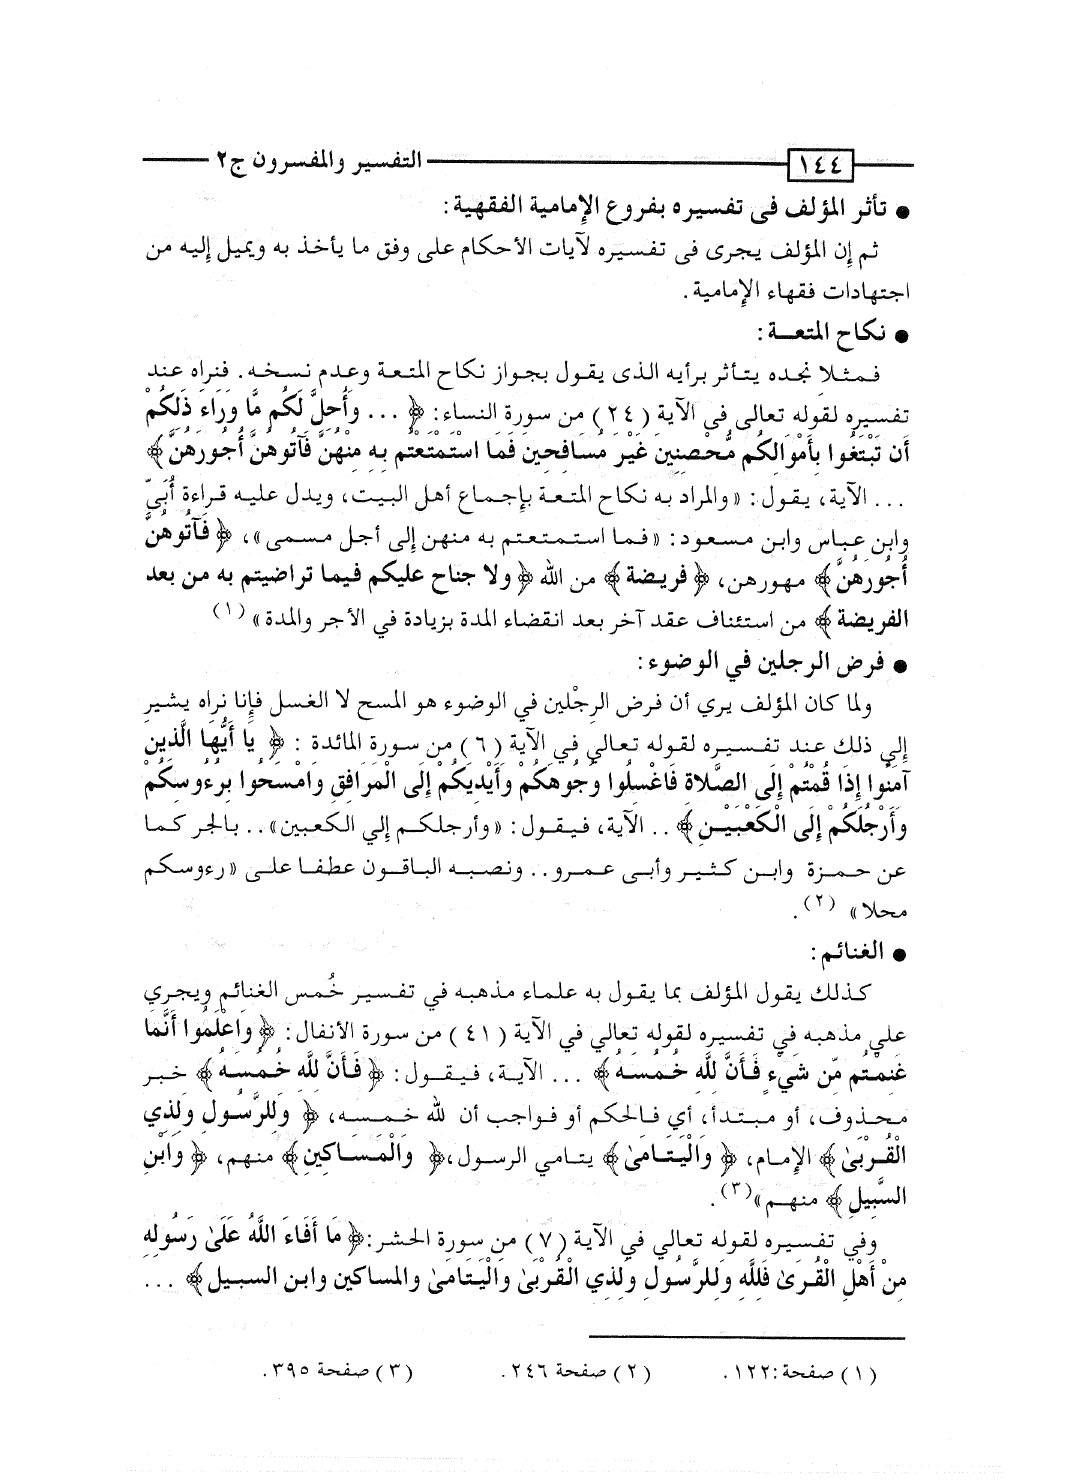 ١٤٤ التفسير والمفسرون ج٢
● تأثر المؤلف فى تفسيره بفروع الإمامية الفقهية:
ثم إن المؤلف يجرى فى تفسيره لآيات الأحكام على وفق ما يأخذ به ويميل إليه من
اجتهادات فقهاء الإمامية.
● نكاح المتعـة:
فـمثلا نجده يتأثر برأيه الذى يقول بجواز نكاح المتعة وعدم نسخه. فنراه عند
تفسيره لقوله تعالى في الآية (٢٤) من سورة النساء: ﴿ ... وَأُحِلَّ لَكُم مَّا وَرَاءَ ذَلِكُمْ
أَن تَبْتَغُوا بِأَمْوَالِكُم مُّحْصِنِينَ غَيْرَ مُسَافِحِينَ فَمَا اسْتَمْتَعْتُم بِهِ مِنْهُنَّ فَآتُوهُنَّ أُجُورَهُنَّ﴾
... الآية، يقول: «والمراد به نكاح المتعة بإجماع أهل البيت، ويدل عليه قراءة أُبَىّ
وابن عباس وابن مسعود: «فما استمتعتم به منهن إلى أجل مسمى»، ﴿ فَآتُوهُنَّ
أُجُورَهُنَّ﴾ مهورهن، ﴿فريضة﴾ من الله ﴿ ولا جناح عليكم فيما تراضيتم به من بعد
الفريضة﴾ من استئناف عقد آخر بعد انقضاء المدة بزيادة في الأجر والمدة» (١)
● فرض الرجلين في الوضوء:
ولما كان المؤلف يري أن فرض الرِجْلين في الوضوء هو المسح لا الغسل فإنا نراه يشير
إلي ذلك عند تفسيره لقوله تعالي في الآية (٦) من سورة المائدة : ﴿ يَا أَيُّهَا الَّذِينَ
آمَنُوا إِذَا قُمْتُمْ إِلَى الصَّلاةِ فَاغْسِلُوا وُجُوهَكُمْ وَأَيْدِيَكُمْ إِلَى الْمَرَافِقِ وَامْسَحُوا بِرُءُوسِكُمْ
وَأَرْجُلَكُمْ إِلَى الْكَعْبَيْنِ﴾ .. الآية، فيـقول: «وأرجلكـم إلي الكعبين».. بالجر كـما
عن حـمزة وابـن كـثيـر وأبـى عـمرو.. ونصبـه البـاقون عطفـا علـى «رءوسكم
محلا» (٢).
● الغنائم:
كـذلك يقول المؤلف بما يقول به علماء مذهبه في تفسير خُمس الغنائم ويجري
علي مذهبه في تفسيره لقوله تعالي في الآية (٤١) من سورة الأنفال: ﴿وَاعْلَمُوا أَنَّمَا
غَنِمْتُم مِّن شَيْءٍ فَأَنَّ لِلَّهِ خُمُسَهُ﴾ ... الآيـة، فيـقول: ﴿فَأَنَّ لِلَّهِ خُمُسَهُ﴾ خبر
محـذوف، أو مبـتدأ، أي فـالحكم أو فـواجب أن لله خـمسـه، ﴿ وَلِلرَّسُولِ وَلِذِي
الْقُرْبَىٰ﴾ الإمـام، ﴿ وَالْيَتَامَىٰ﴾ يتامي الرسول،﴿ وَالْمَسَاكِينِ﴾ منهم، ﴿وَابْنِ
السَّبِيلِ﴾ منهـم»(٣).
وفي تفسيره لقوله تعالي في الآية (٧) من سورة الحشر:﴿مَا أَفَاءَ اللَّهُ عَلَىٰ رَسُولِهِ
مِنْ أَهْلِ الْقُرَىٰ فَلِلَّهِ وَلِلرَّسُولِ وَلِذِي الْقُرْبَىٰ وَالْيَتَامَىٰ والمساكين وابن السبيل﴾ ...
(١) صفحة:١٢٢. (٢) صفحة ٢٤٦. (٣) صفحة ٣٩٥.